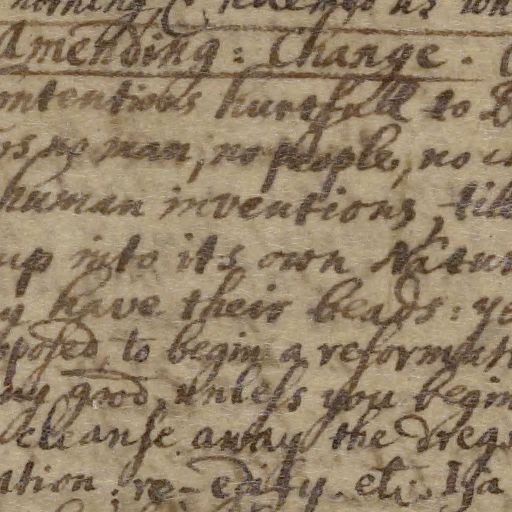 redeemed us
Amending: Change.
ontentions hurtfull to
no man, no people, no
human inventions, till
up into its own Natur
y have their beads: ye
pposed to begin a reformati
ny good, unless you begin
cleanse away the dregs
ation; re-edify. etc. Isa